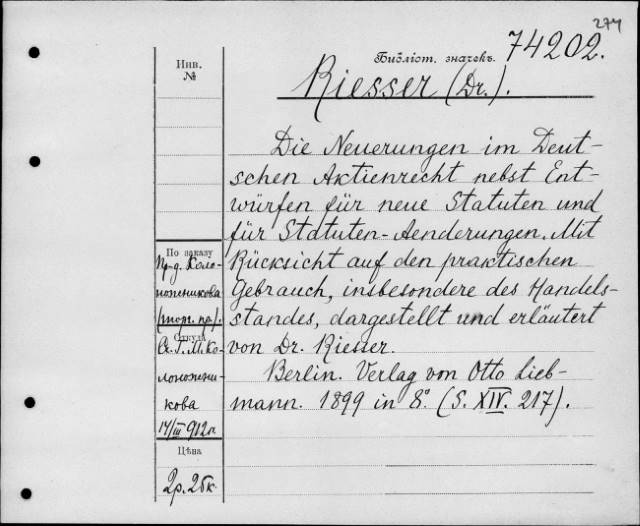 274
Библіот. значекъ. 74202.
Riesser (Dr.).
Инв.
№
Die Neuerungen im Deut-
schen Aktienrecht nebst Ent-
würfen für neue Statuten und
für Statuten-Aenderungen. Mit
Rücksicht auf den praktischen
Gebrauch, insbesondere des Handels-
standes, dargestellt und erläutert
von Dr. Riesser.
Berlin. Verlag von Otto Lieb-
mann. 1899 in 8°. (S. XIV. 217).
По заказу
Пр-д. Коло-
ножникова
(торг. пр.).
Откуда
Ко-
кова
14/III 912
Цѣна
2р. 25к